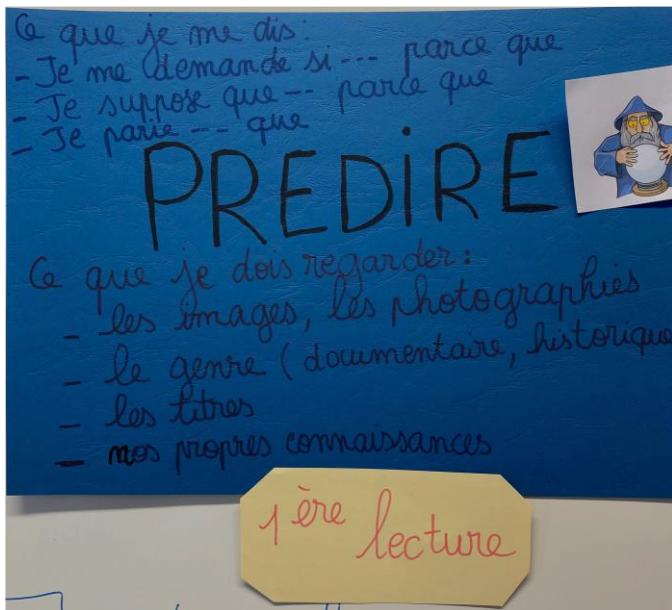 Ce que je me dis:
- Je me demande si --- parce que
- Je suppose que -- parce que
- Je parie --- que
PREDIRE
Ce que je dois regarder:
- les images, les photographies
- le genre (documentaire, historique
- les titres
- nos propres connaissances
1ère lecture